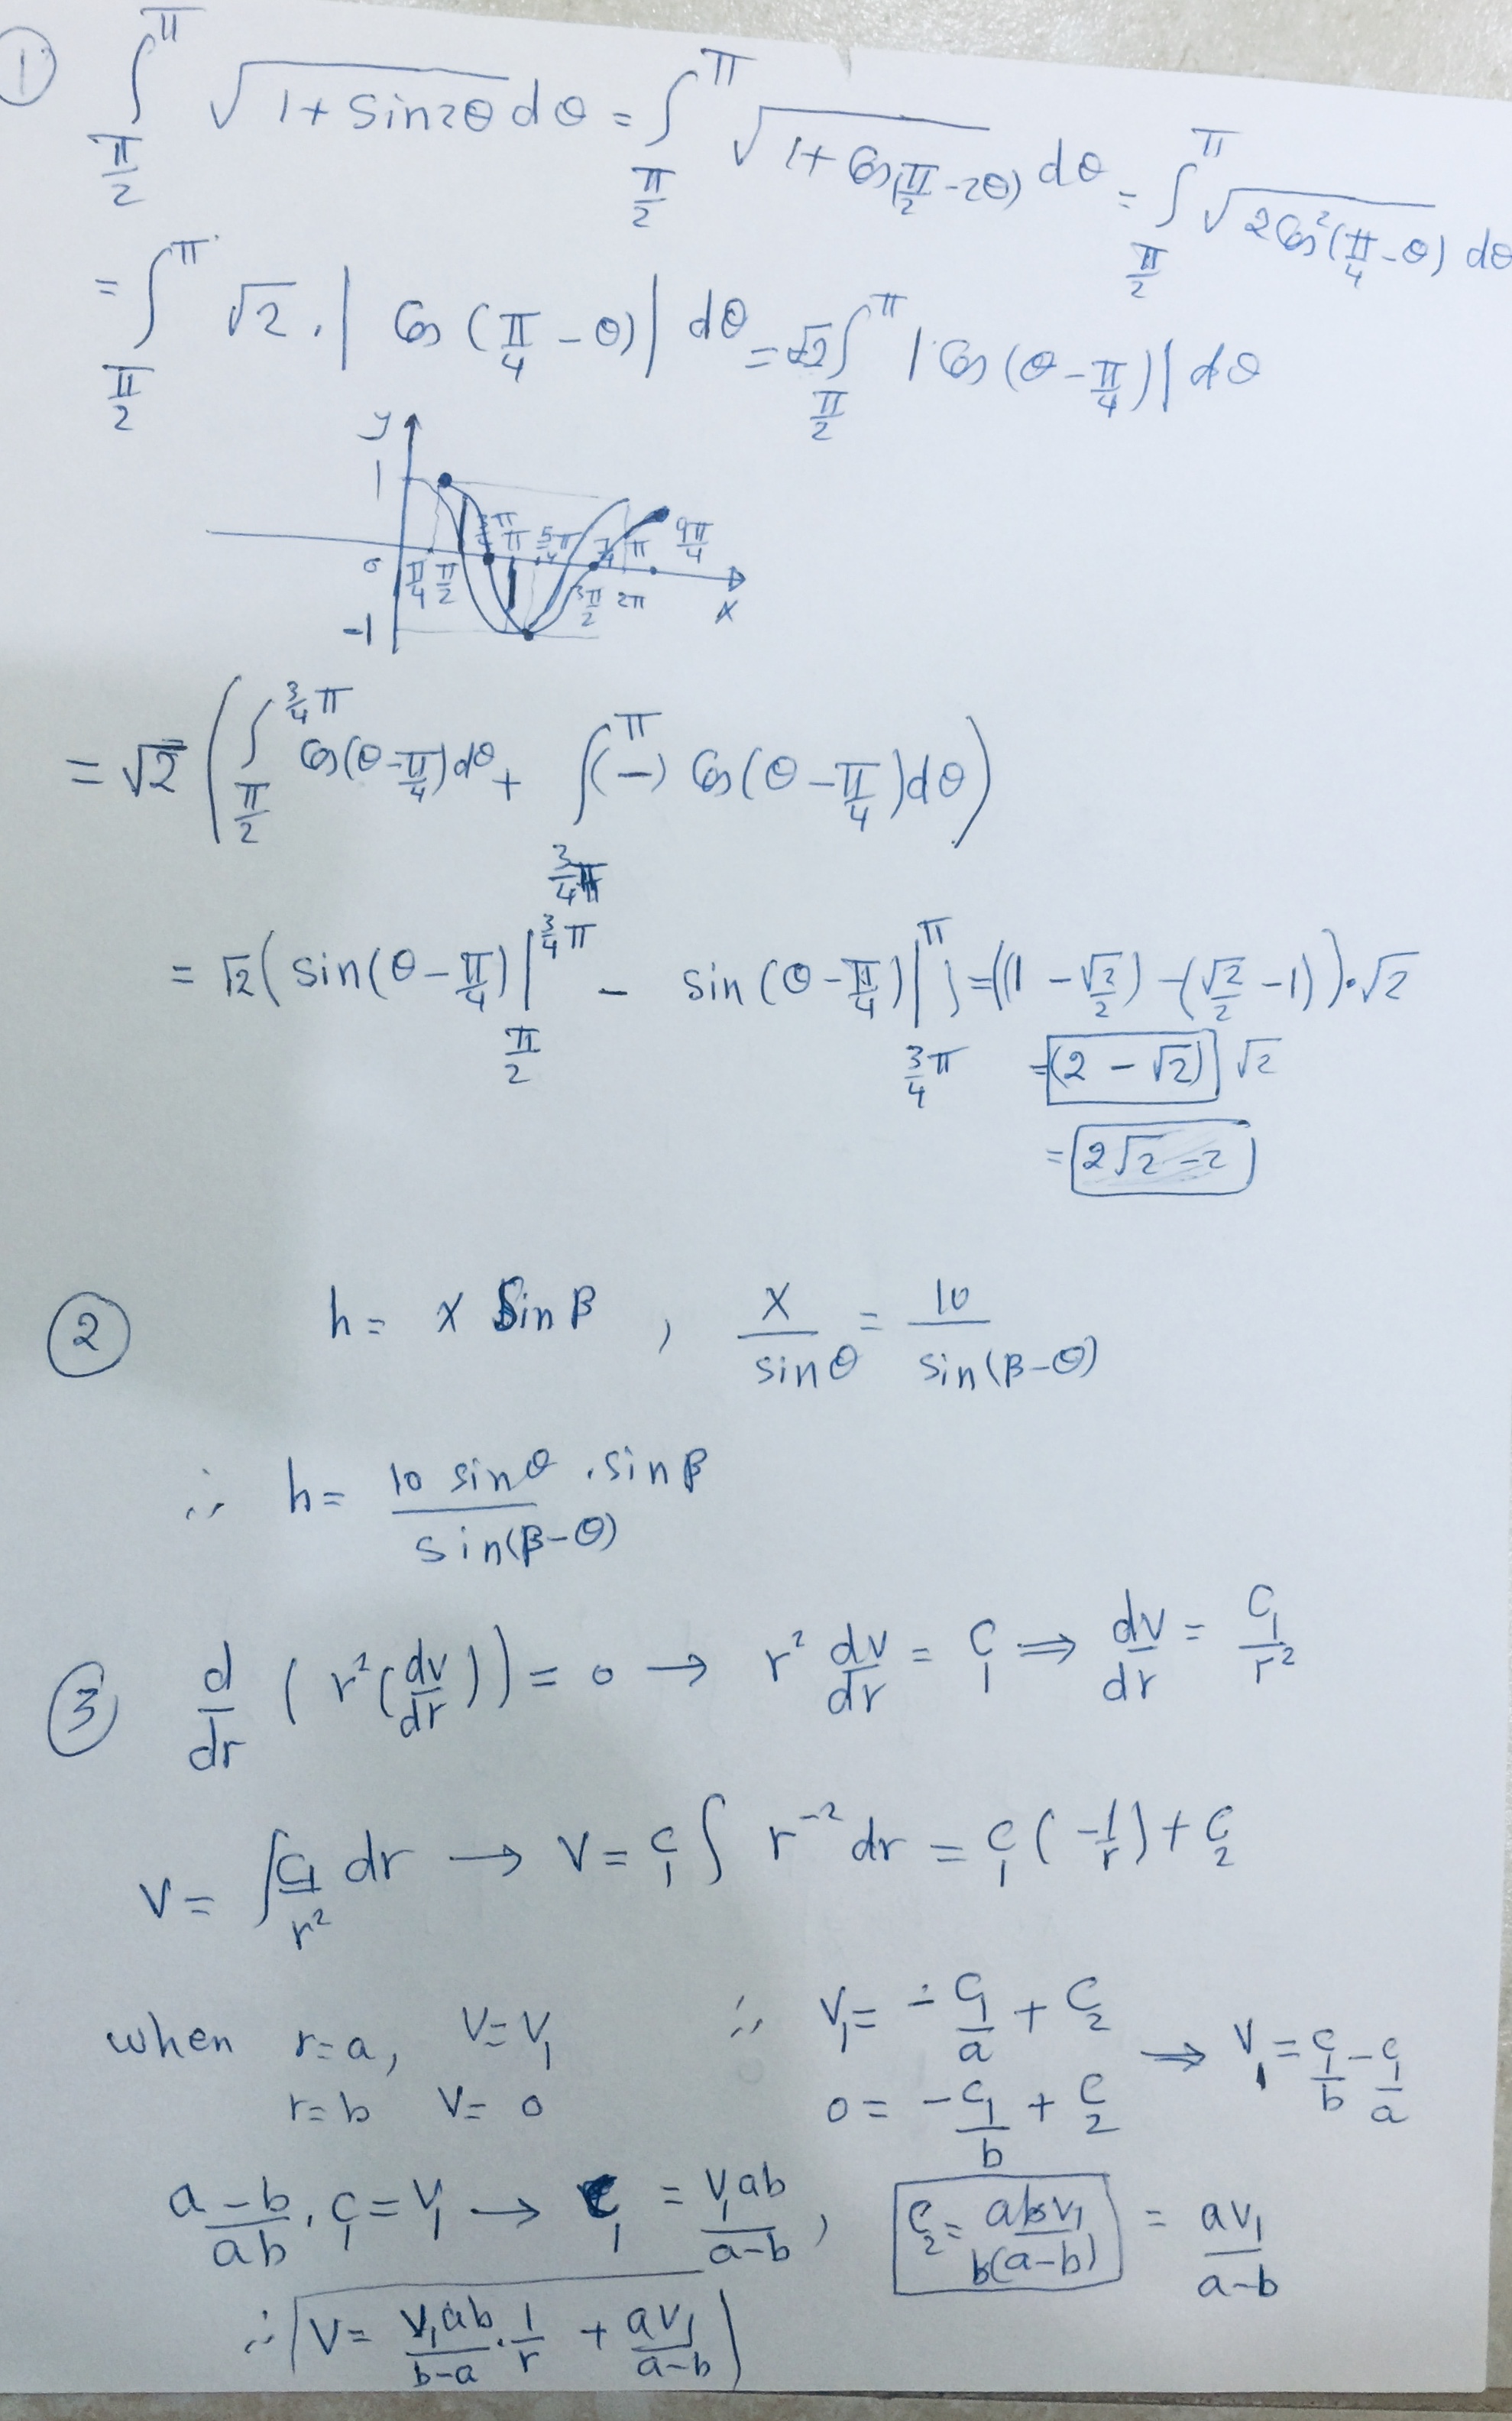 ① ∫_{π/2}^{π} √(1+sin2θ) dθ = ∫_{π/2}^{π} √(1+Cos(π/2-2θ)) dθ = ∫_{π/2}^{π} √(2Cos²(π/4-θ)) dθ
= ∫_{π/2}^{π} √2 . | Cos(π/4-θ) | dθ = √2 ∫_{π/2}^{π} | Cos(θ-π/4) | dθ
y
1
0 π/4 π/2 π 5/4π 7/4π 9π/4
3π/2 2π x
-1
= √2 ( ∫_{π/2}^{3/4π} Cos(θ-π/4)dθ + ∫_{3/4π}^{π} (-) Cos(θ-π/4)dθ )
= √2 ( sin(θ-π/4) |_{π/2}^{3/4π} - sin(θ-π/4) |_{3/4π}^{π} ) = ((1-√2/2) - (√2/2-1)).√2
= (2-√2) √2
= 2√2-2
② h= x Sinβ , x/sinθ = 10/sin(β-θ)
∴ h= 10 sinθ . sinβ / sin(β-θ)
③ d/dr ( r²(dv/dr)) = 0 → r² dv/dr = C₁ ⇒ dv/dr = C₁/r²
V= ∫ C₁/r² dr → V= C₁ ∫ r⁻² dr = C₁(-1/r) + C₂
when r=a, V=V₁ ∴ V₁= -C₁/a + C₂
r=b V=0 0= -C₁/b + C₂ ⇒ V₁ = C₁/b - C₁/a
a-b/ab . C₁ = V₁ → C₁ = V₁ab/a-b , C₂= abV₁/b(a-b) = aV₁/a-b
∴ V= V₁ab/b-a . 1/r + aV₁/a-b